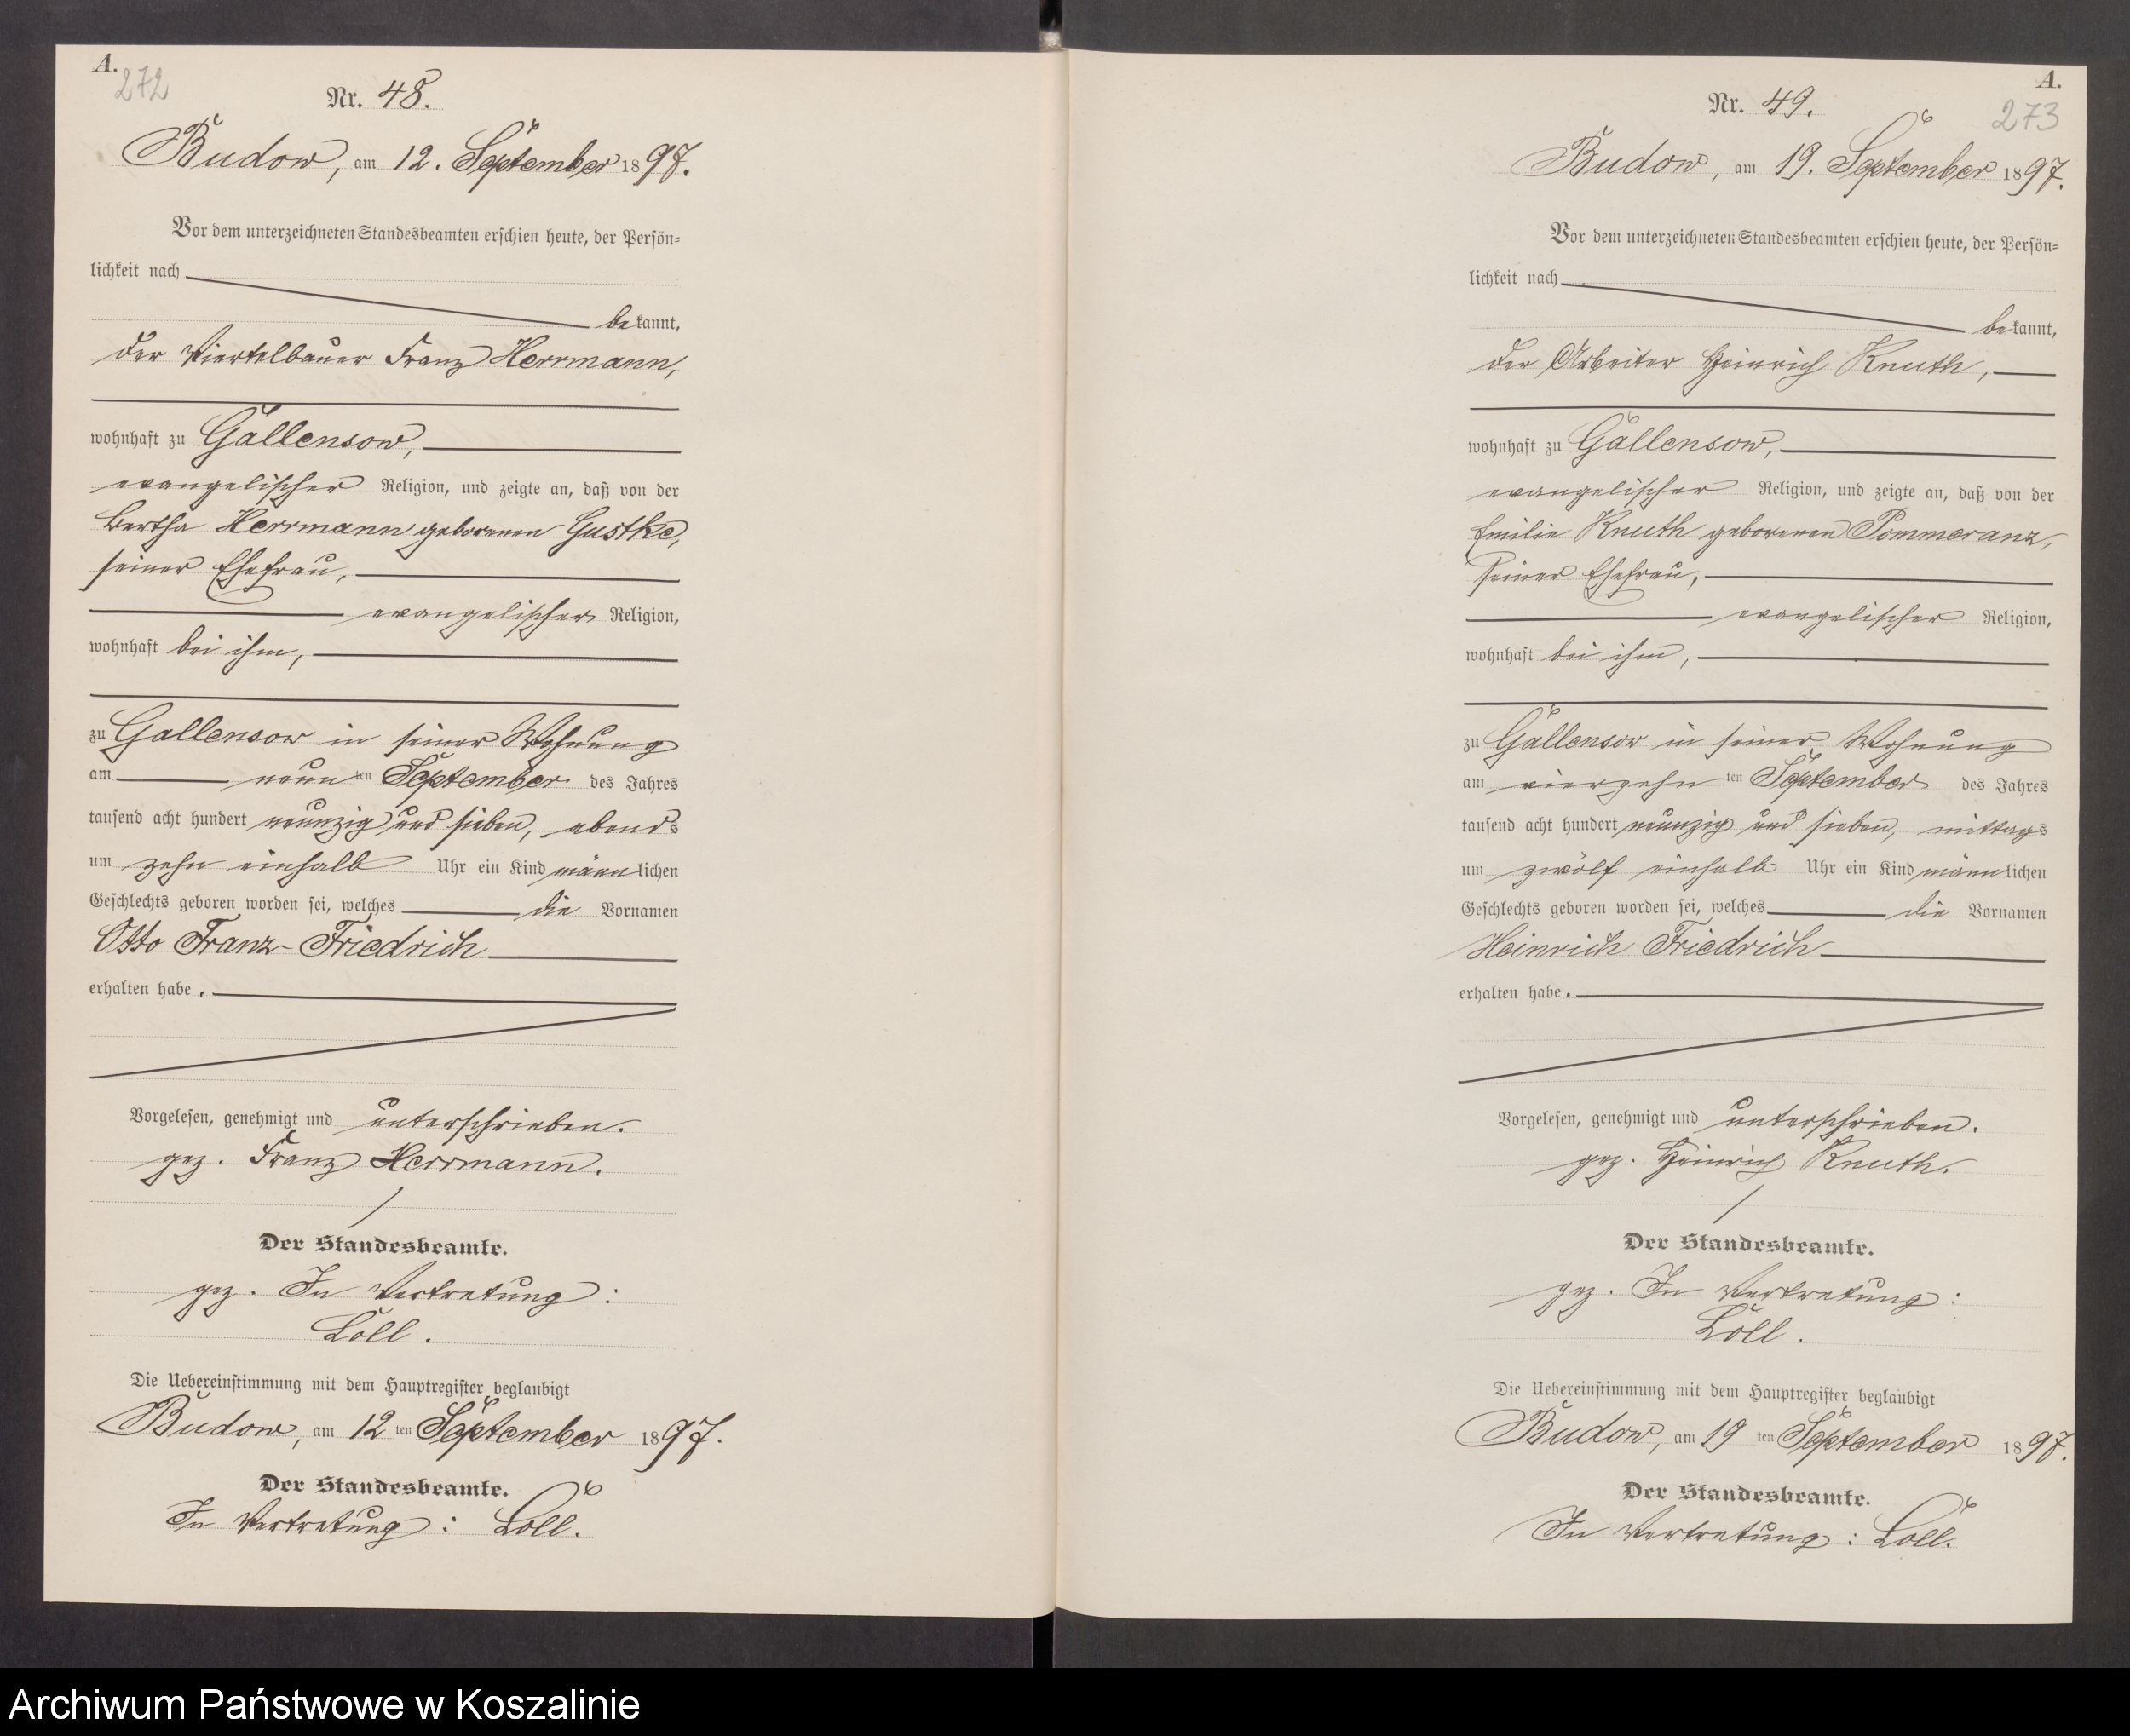 A.
272
Nr. 48.
Budow, am 12. September 1897.
Vor dem unterzeichneten Standesbeamten erschien heute, der Persön=
lichkeit nach
bekannt,
der Viertelbauer Franz Herrmann,
wohnhaft zu Gallensow,
evangelischer Religion, und zeigte an, daß von der
Bertha Herrmann geborenen Gustke,
seiner Ehefrau,
evangelischer Religion,
wohnhaft bei ihm,
zu Gallensow in seiner Wohnung
am neunten September des Jahres
tausend acht hundert neunzig und sieben, abends
um zehn einhalb Uhr ein Kind männlichen
Geschlechts geboren worden sei, welches die Vornamen
Otto Franz Friedrich
erhalten habe.
Vorgelesen, genehmigt und unterschrieben.
gez. Franz Herrmann.
Der Standesbeamte.
gez. In Vertretung:
Loll.
Die Uebereinstimmung mit dem Hauptregister beglaubigt
Budow, am 12ten September 1897.
Der Standesbeamte.
In Vertretung: Loll.
A.
273
Nr. 49.
Budow, am 19. September 1897.
Vor dem unterzeichneten Standesbeamten erschien heute, der Persön=
lichkeit nach
bekannt,
der Arbeiter Heinrich Knuth,
wohnhaft zu Gallensow,
evangelischer Religion, und zeigte an, daß von der
Emilie Knuth geborenen Pommeranz,
seiner Ehefrau,
evangelischer Religion,
wohnhaft bei ihm,
zu Gallensow in seiner Wohnung
am vierzehnten September des Jahres
tausend acht hundert neunzig und sieben, mittags
um zwölf einhalb Uhr ein Kind männlichen
Geschlechts geboren worden sei, welches die Vornamen
Heinrich Friedrich
erhalten habe.
Vorgelesen, genehmigt und unterschrieben.
gez. Heinrich Knuth.
Der Standesbeamte.
gez. In Vertretung:
Loll.
Die Uebereinstimmung mit dem Hauptregister beglaubigt
Budow, am 19ten September 1897.
Der Standesbeamte.
In Vertretung: Loll.
Archiwum Państwowe w Koszalinie